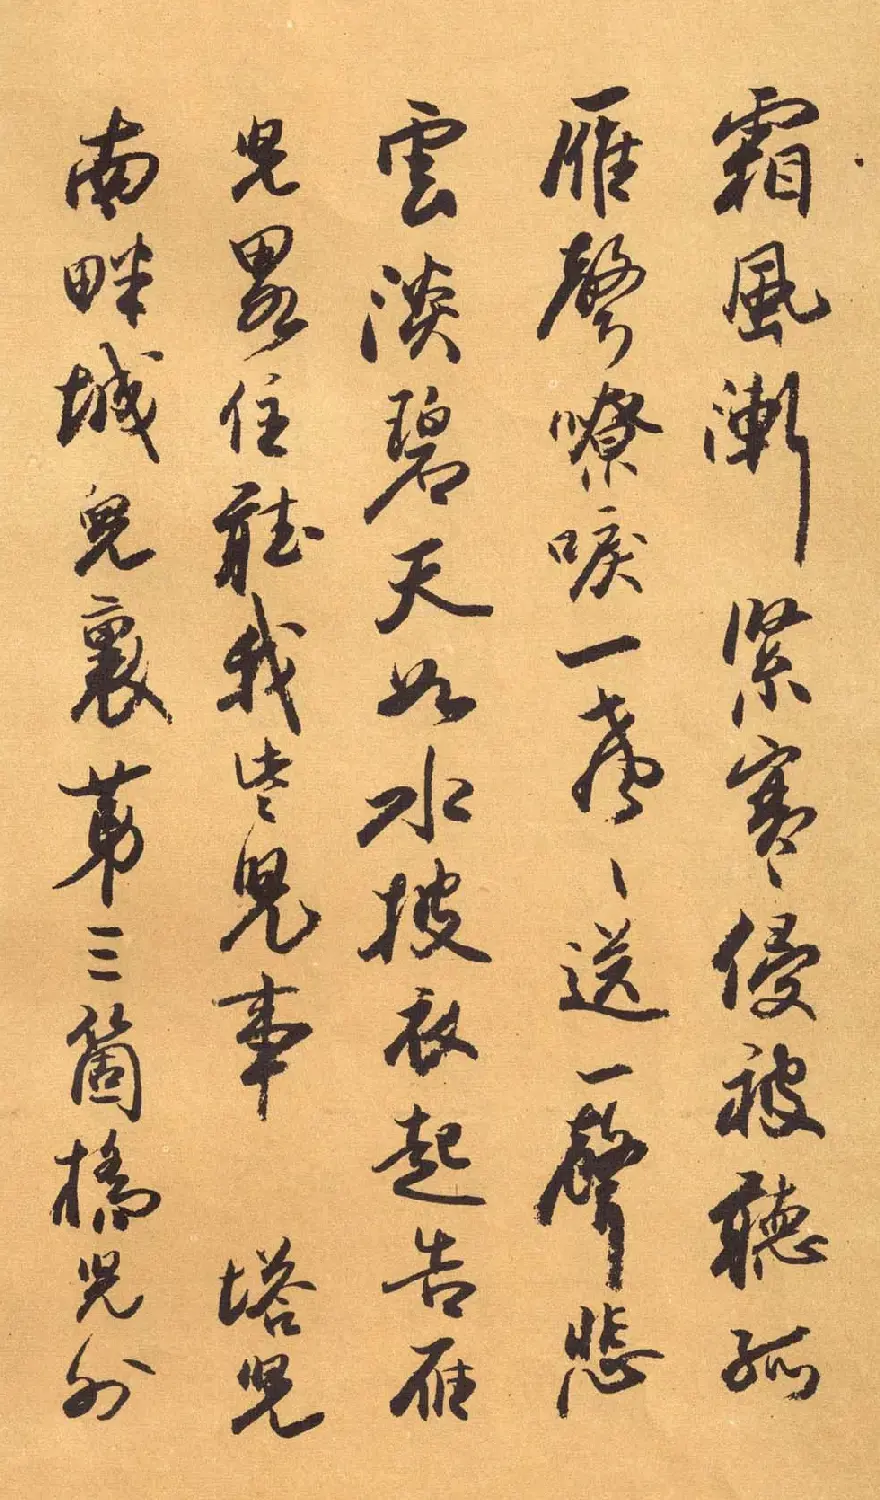 霜風漸緊寒侵被聽孤
雁聲嘹唳一聲々送一聲悲
雲淡碧天如水披衣起告雁
兒畧住聽我些兒事 塔兒
南畔城兒裏第三箇橋兒外